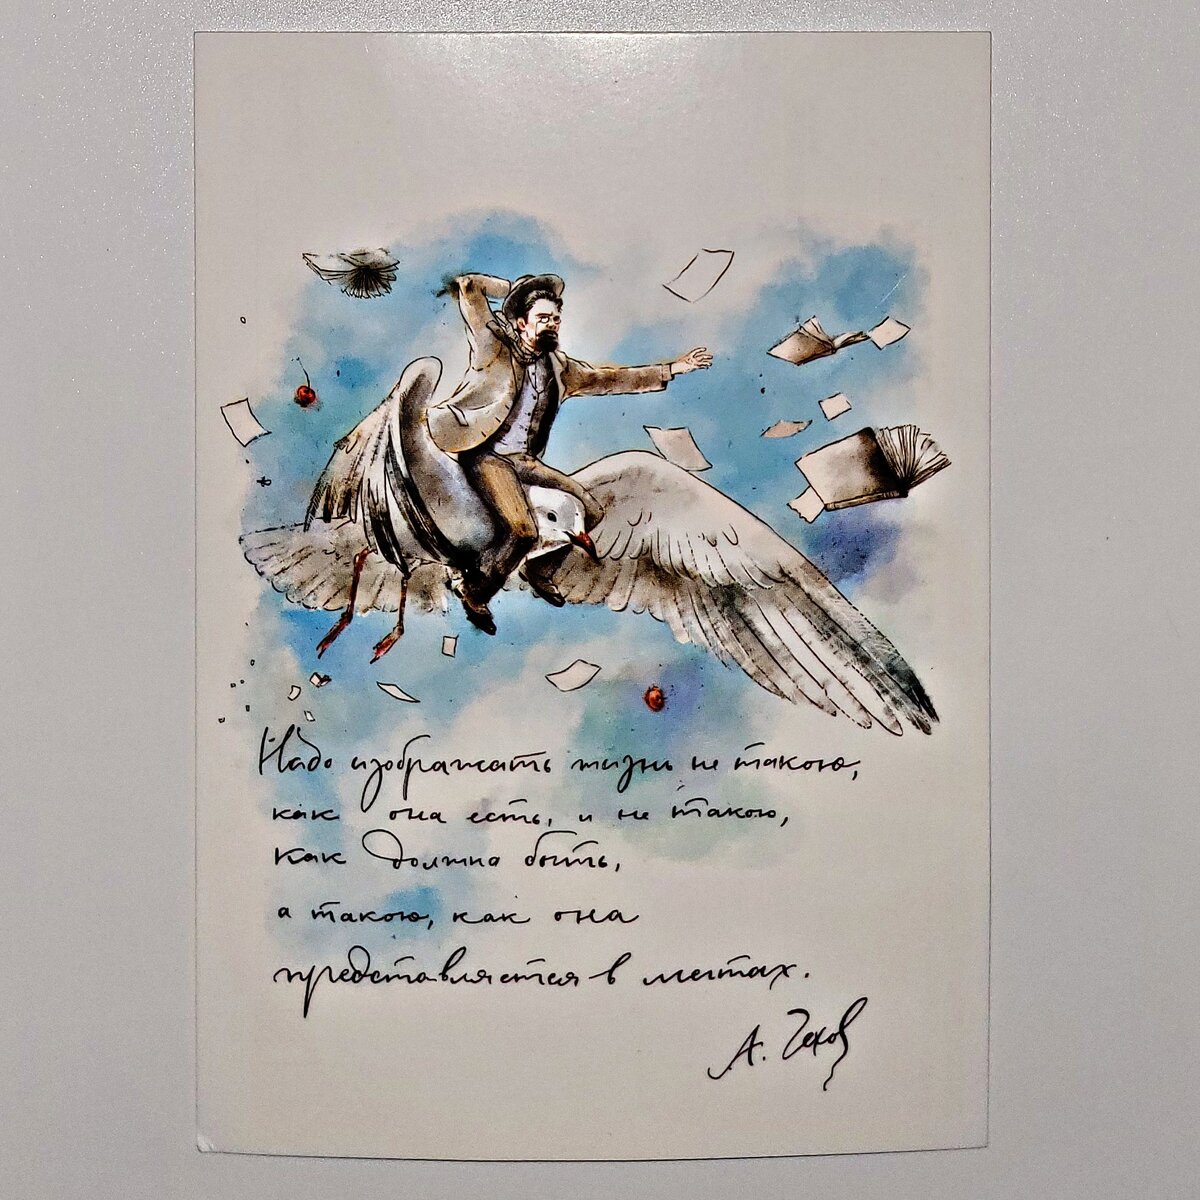 Надо изображать жизнь не такою,
как она есть, и не такою,
как должна быть,
а такою, как она
представляется в мечтах.
А. Чехов